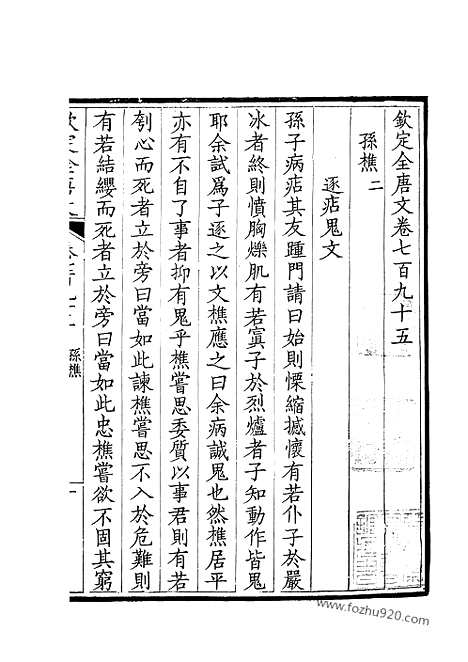 欽定全唐文卷七百九十五
孫樵二
逐痁鬼文
孫子病痁其友踵門請曰始則慄縮撼懷有若仆子於嚴
冰者終則憤胸爍肌有若寘子於烈爐者子知動作皆鬼
耶余試爲子逐之以文樵應之曰余病誠鬼也然樵居平
亦有不自了事者抑有鬼乎樵嘗思委質以事君則有若
刳心而死者立於旁曰當如此諫樵嘗思不入於危難則
有若結纓而死者立於旁曰當如此忠樵嘗欲不固其窮
孫樵
www.fozhu920.com